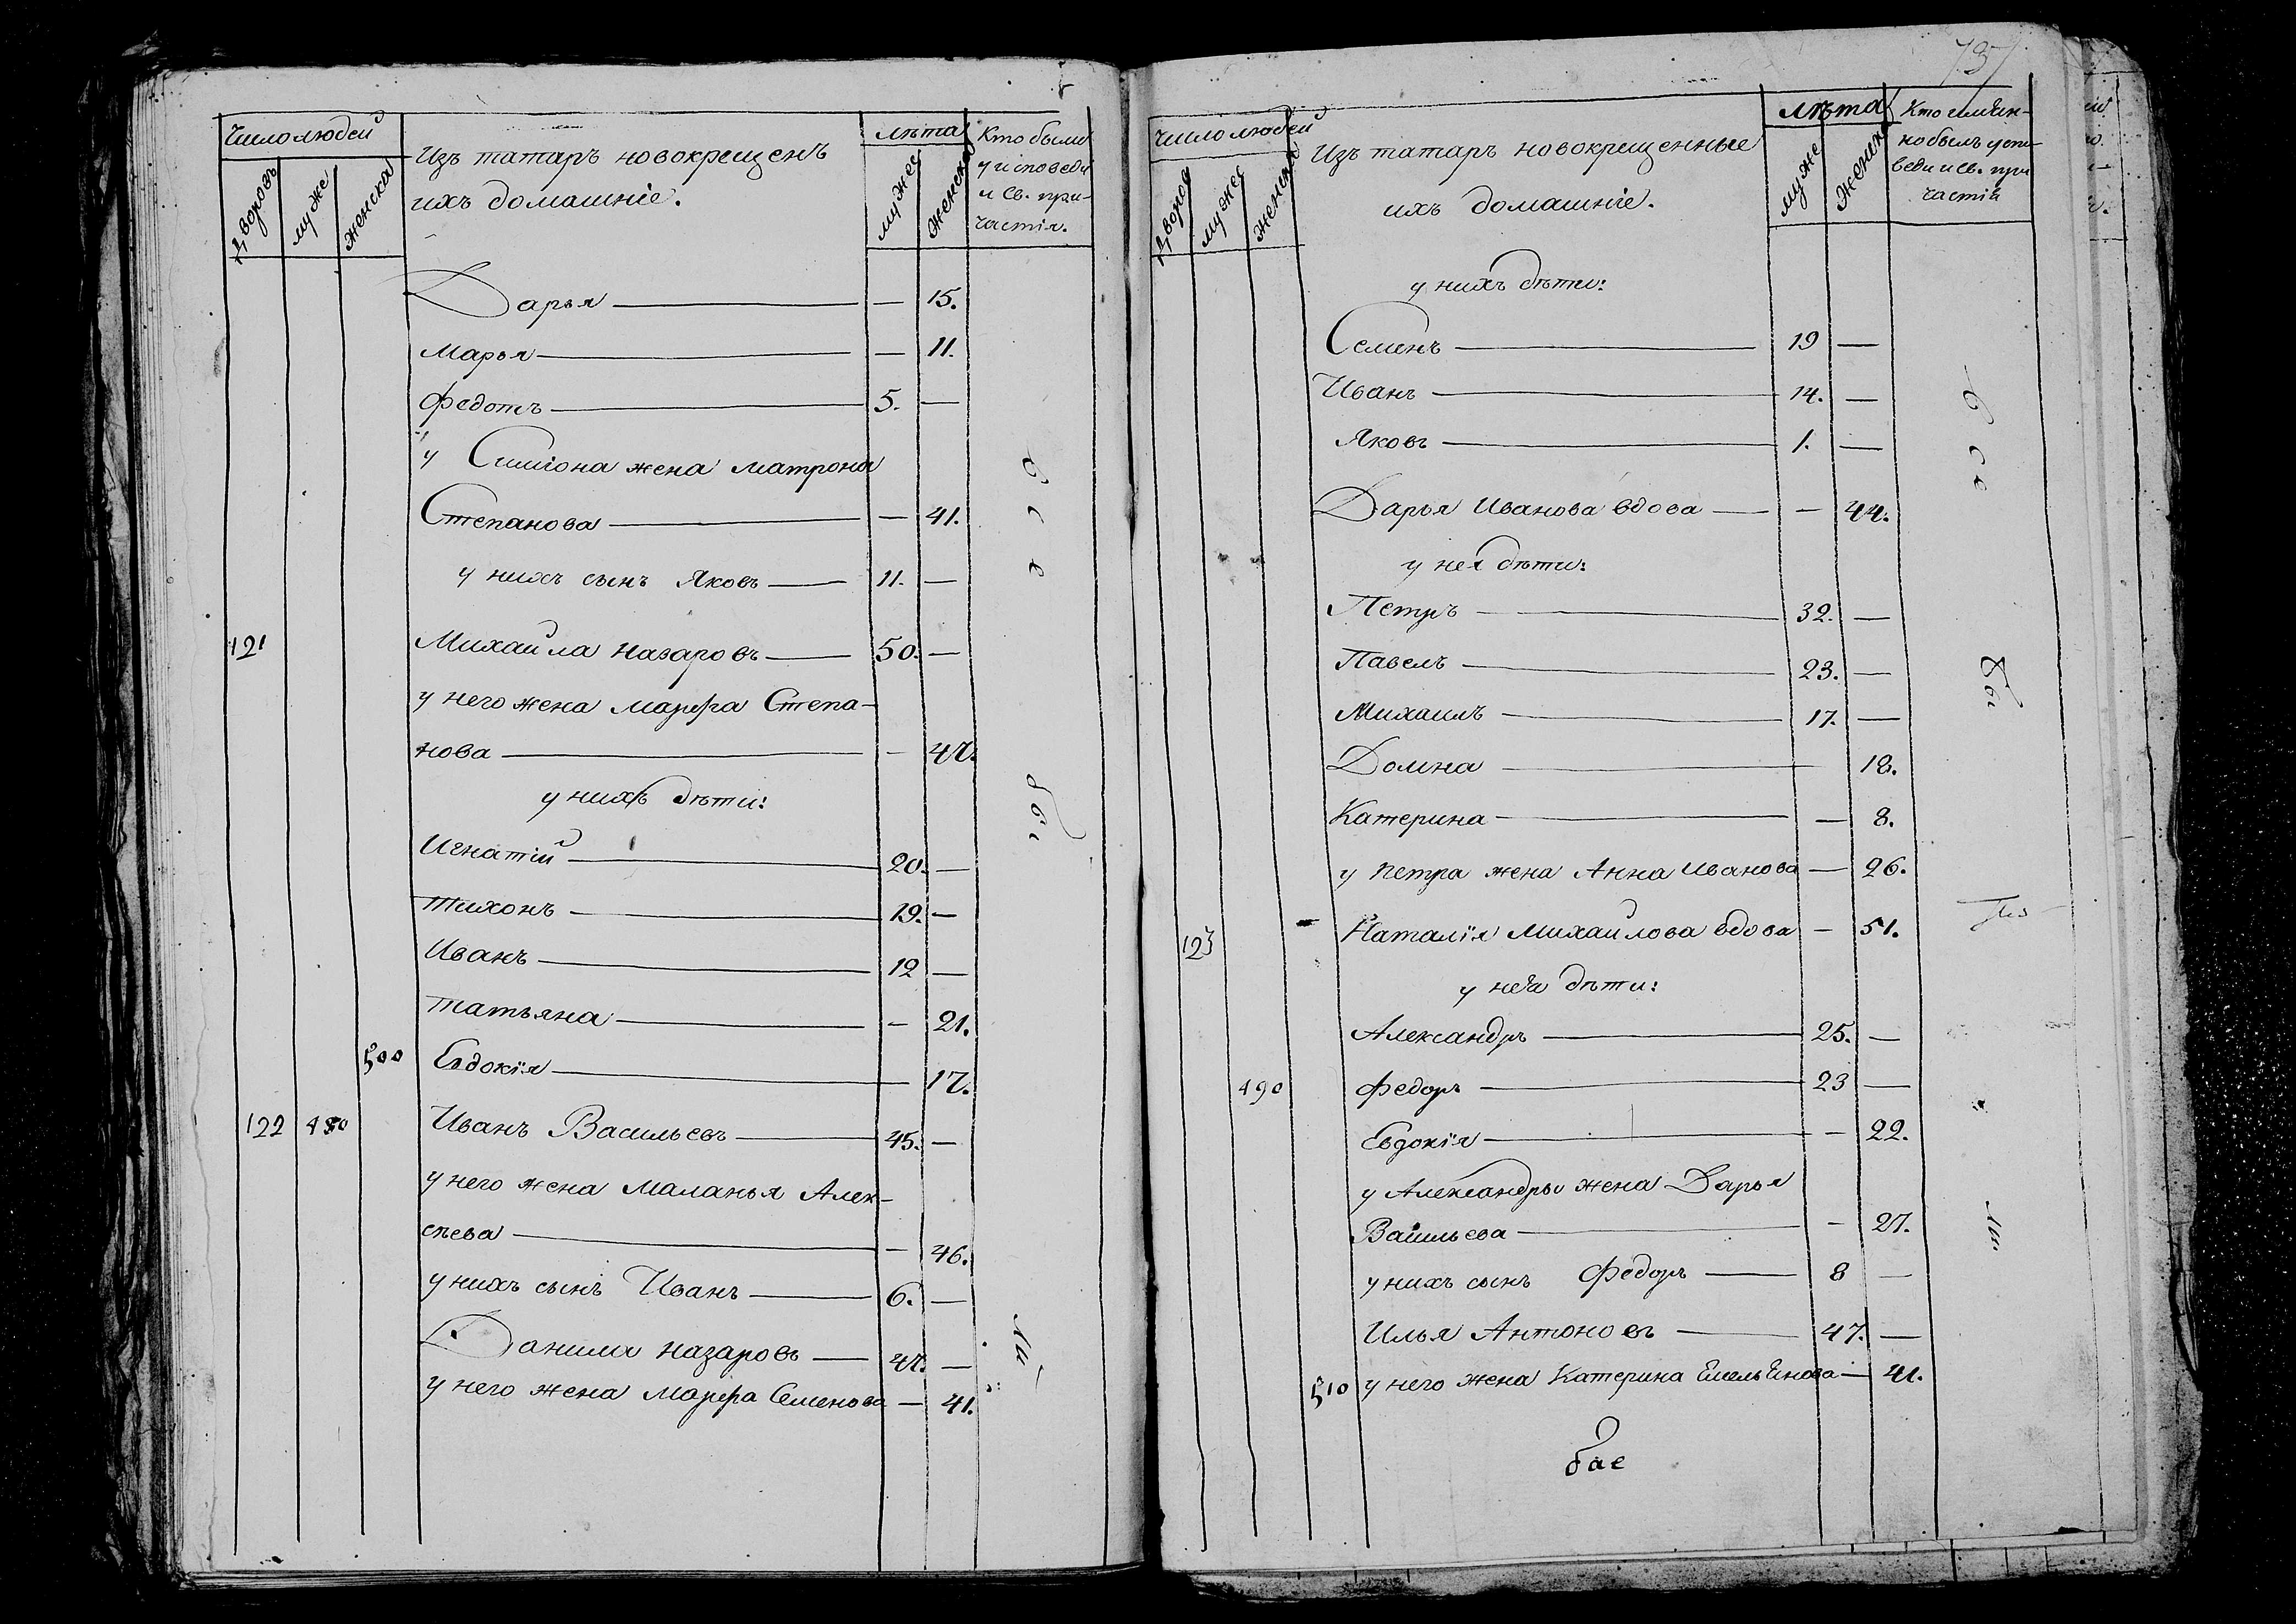 Число людей
Дворовъ
муже
женска
Изъ татаръ новокрещенъ
ихъ домашніе.
лѣта
мужес
женска
Кто были
у исповеди
и св. при-
частія.
Дарья — — 15.
Марья — — 11.
Федотъ — 5. —
у Симиона жена Матрона
Степанова — — 41.
у нихъ сынъ Яковъ — 11. —
121 Михайла Назаровъ — 50. —
у него жена Марфа Степа-
нова — — 47.
у нихъ дѣти:
Игнатій — 20. —
Тихонъ — 19. —
Иванъ — 12 —
Татьяна — — 21.
500 Евдокія — 17.
122 480 Иванъ Васильевъ — 45. —
у него жена Маланья Алек-
сѣева — — 46.
у нихъ сынъ Иванъ — 6. —
Данила Назаровъ — 47. —
у него жена Марфа Семенова — 41.
в с е
бы
ли
737
Число людей
Дворов
мужес
женска
Изъ татаръ новокрещенные
ихъ домашніе.
лѣта
муже
женска
Кто имян-
но былъ у испо-
веди и св. при
частія
у нихъ дѣти:
Семенъ — 19 —
Иванъ — 14. —
Яковъ — 1. —
Дарья Иванова вдова — — 44.
у нея дѣти:
Петръ — 32. —
Павелъ — 23. —
Михаилъ — 17. —
Домна — 18.
Катерина — — 8.
у Петра жена Анна Иванова — 26.
123 Наталія Михайлова вдова — 51.
у нея дѣти:
Александръ — 25. —
490 Федоръ — 23 —
Евдокія — — 22.
у Александры жена Дарья
Васильева — — 27.
у нихъ сынъ Федоръ — 8 —
Илья Антоновъ — 47. —
510 у него жена Катерина Емельянова — 41.
в с е
бы
ли